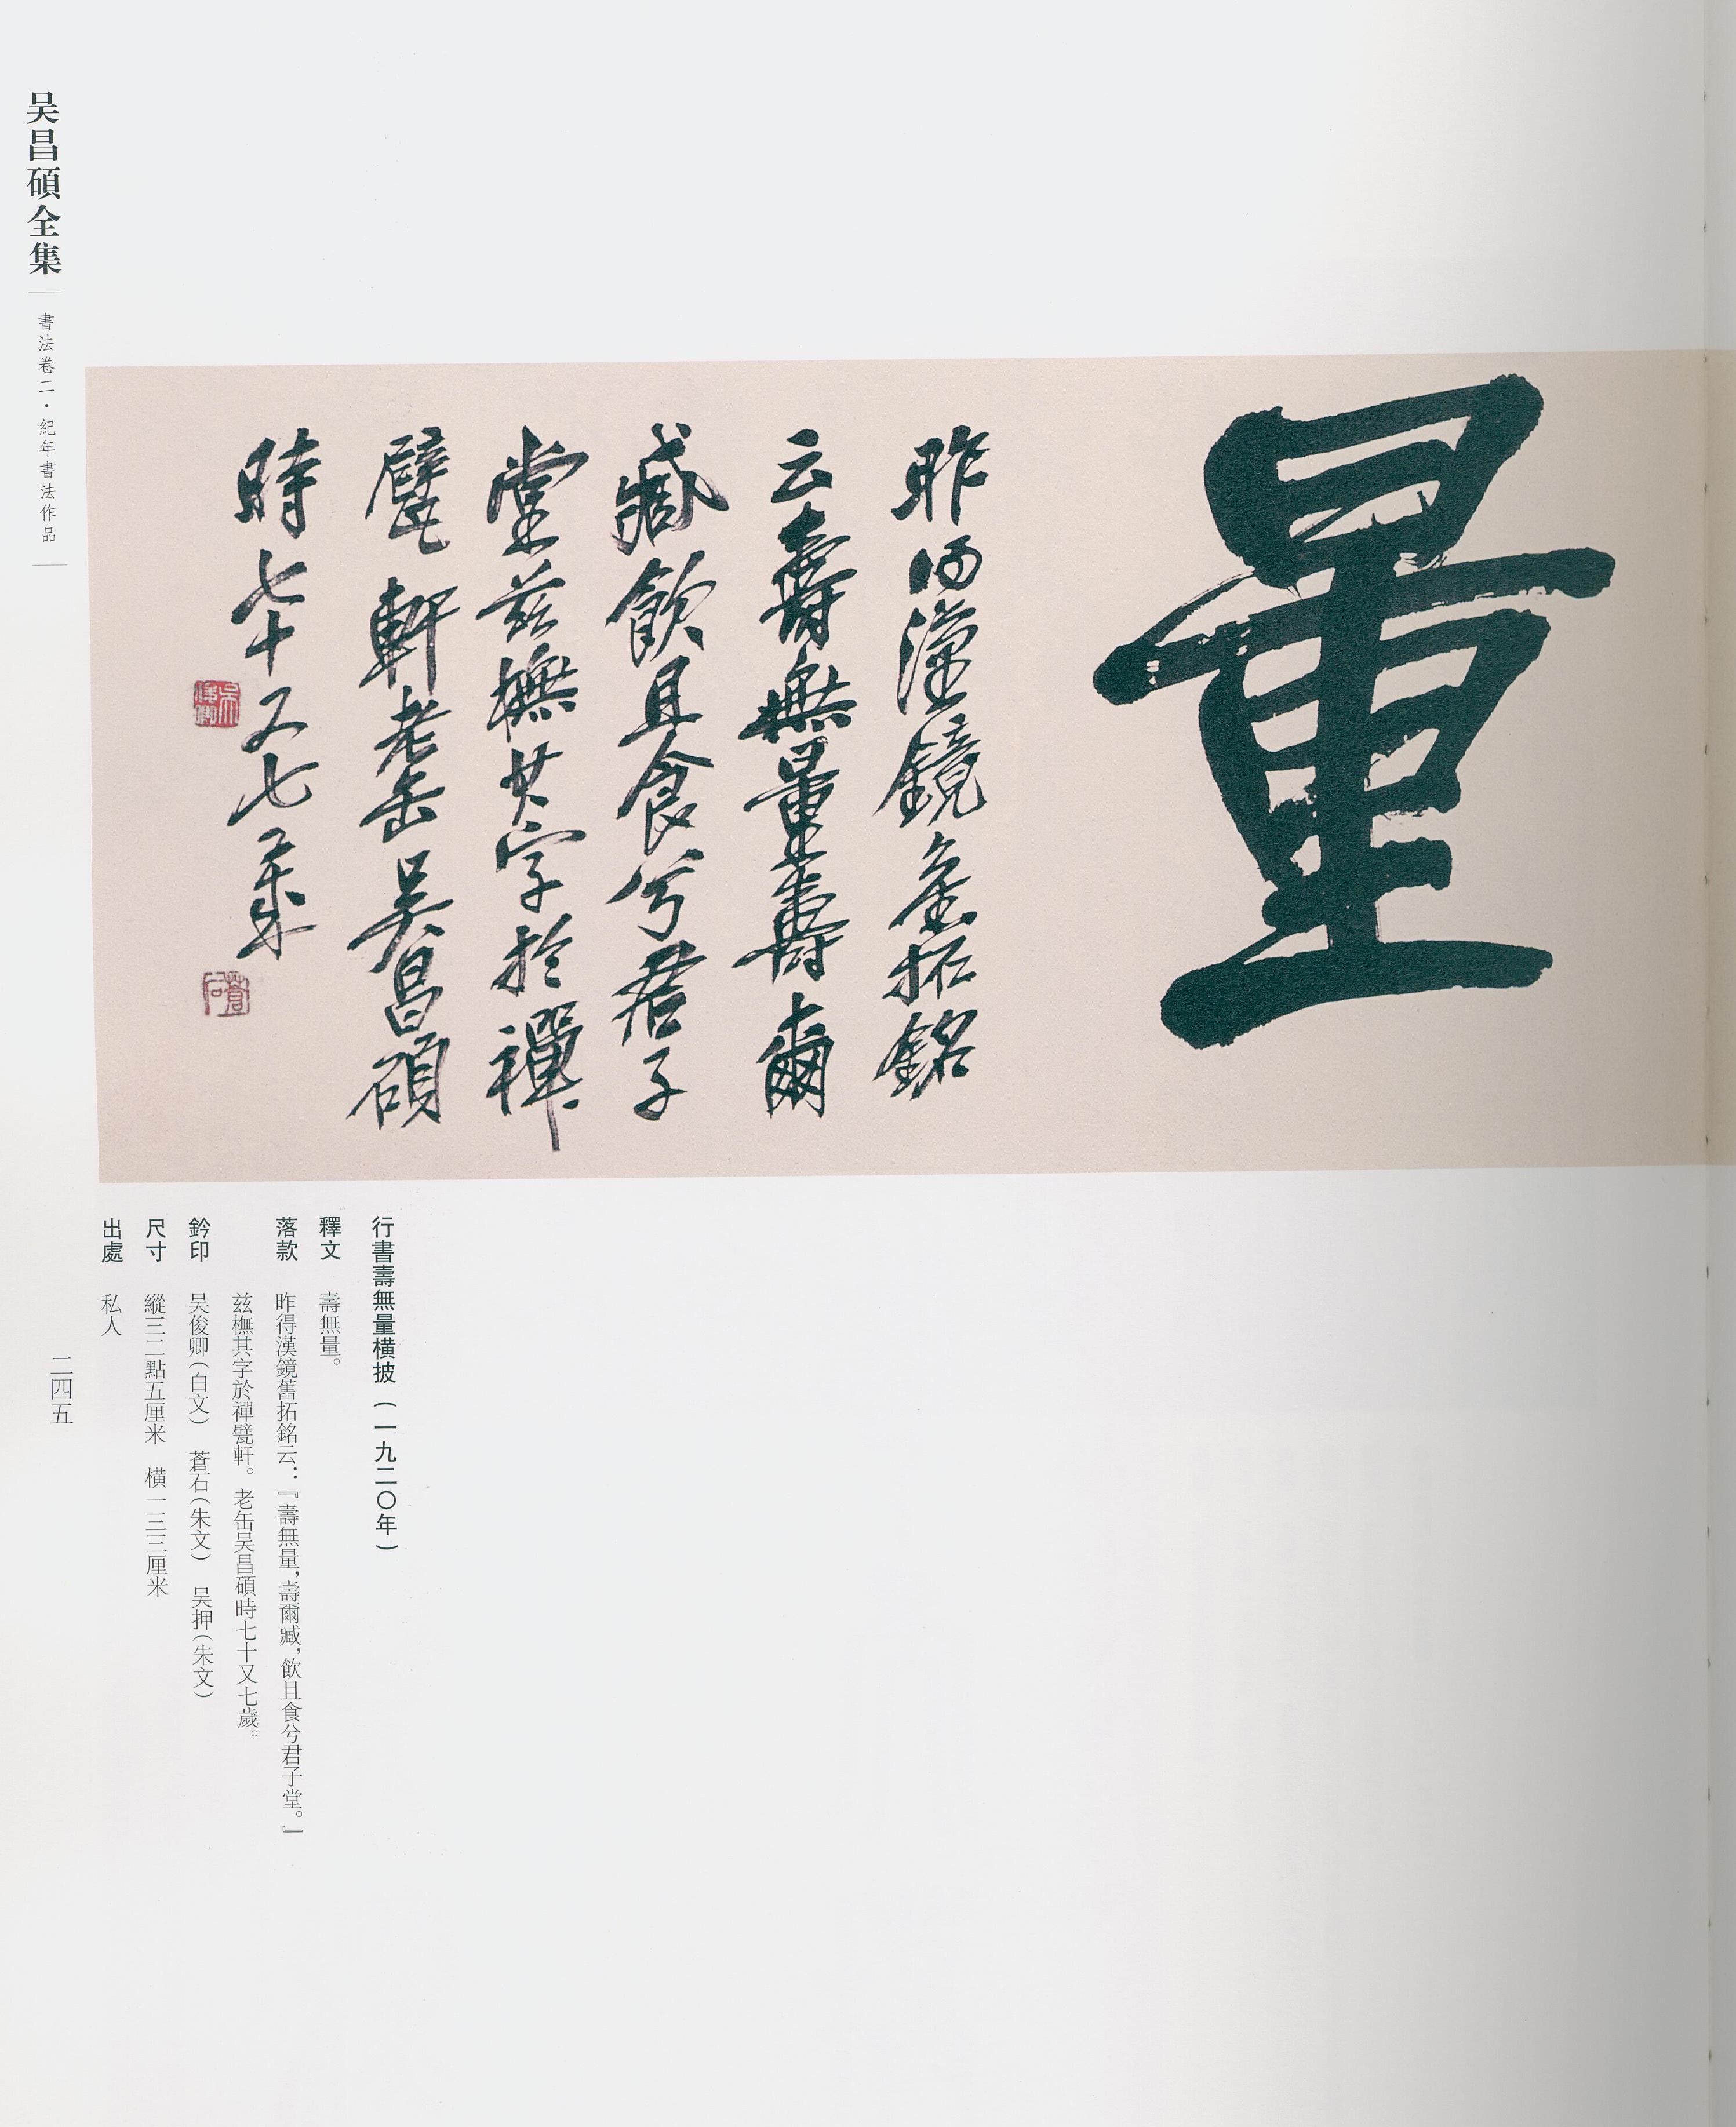 量
昨得漢鏡舊拓銘
云壽無量壽爾
臧飲且食兮君子
堂茲橅其字於禪
甓軒老缶吴昌碩
時七十又七歲
吴俊卿
蒼石
行書壽無量横披（一九二〇年）
釋文　壽無量。
落款　昨得漢鏡舊拓銘云：『壽無量，壽爾臧，飲且食兮君子堂。』
兹橅其字於禪甓軒。老缶吴昌碩時七十又七歲。
鈐印　吴俊卿（白文）　蒼石（朱文）　吴押（朱文）
尺寸　縱三二點五厘米　横一三三厘米
出處　私人
吴昌碩全集
書法卷二·紀年書法作品
二四五